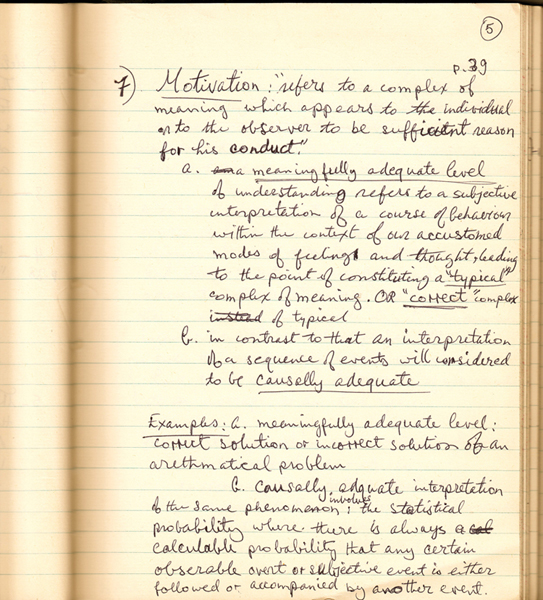 5
p. 39
7) Motivation: "refers to a complex of
meaning which appears to the individual
or to the observer to be sufficient reason
for his conduct."
a. a meaningfully adequate level
of understanding refers to a subjective
interpretation of a course of behaviour
within the context of our accustomed
modes of feeling and thought, leading
to the point of constituting a "typical"
complex of meaning. OR "correct" complex
instead of typical
b. in contrast to that an interpretation
of a sequence of events will considered
to be causally adequate
Examples: a. meaningfully adequate level:
correct solution or incorrect solution of an
arethmatical problem
b. causally adquate interpretation
of the same phenomenon: involves the statistical
probability where there is always a
calculable probability that any certain
obserable overt or subjective event is either
followed or accompanied by another event.